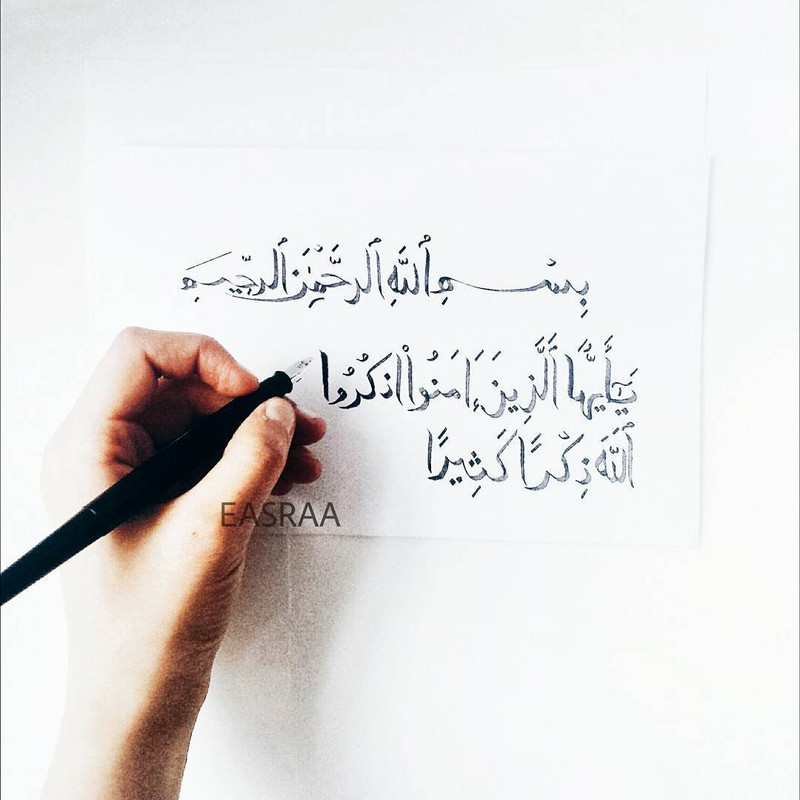 بِسْمِ ٱللَّهِ ٱلرَّحْمَٰنِ ٱلرَّحِيمِ
يَٰٓأَيُّهَا ٱلَّذِينَ ءَامَنُوا۟ ٱذْكُرُوا۟
ٱللَّهَ ذِكْرًا كَثِيرًا
EASRAA